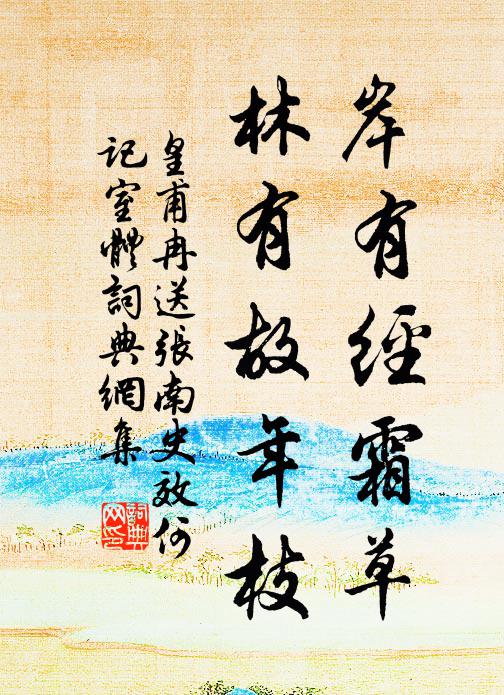 岸有經霜草
林有故年枝
皇甫冉送張南史效何
記室體詞典網集
詞典
网印